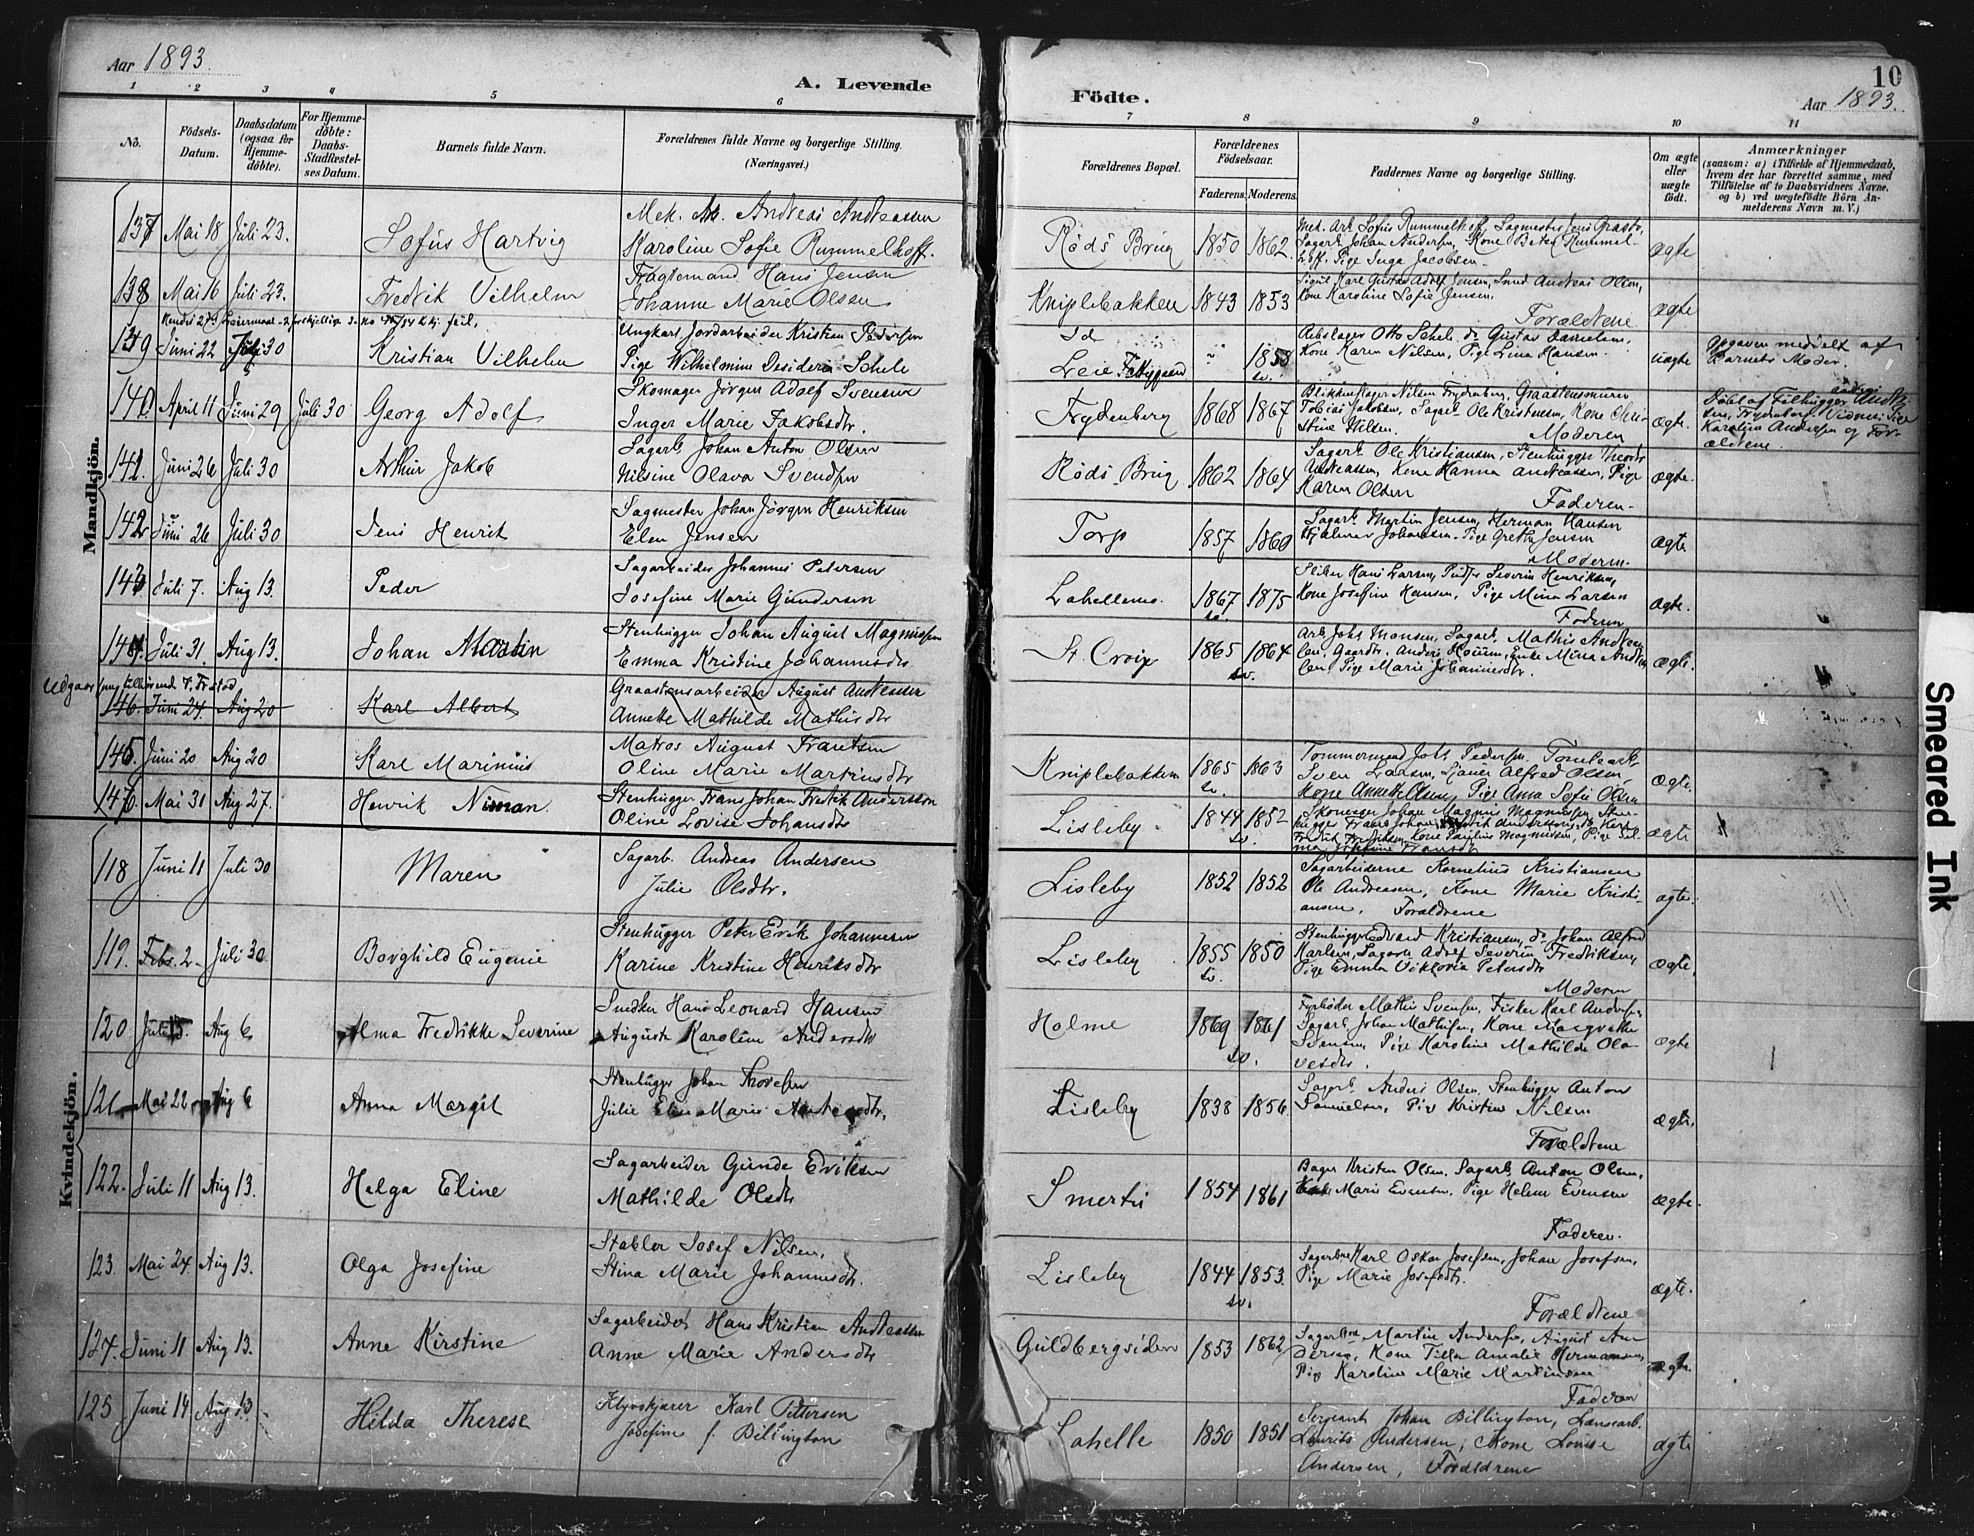 Aar 1893.
A. Levende
Födte.
10
Aar 1893.
1 2 3 4 5 6 7 8 9 10 11
No.
Födsels-
Datum.
Daabsdatum
(ogsaa for
Hjemme-
döbte).
For Hjemme-
döbte:
Daabs-
Stadfæstel-
ses Datum.
Barnets fulde Navn.
Forældrenes fulde Navne og borgerlige Stilling.
(Næringsvei.)
Forældrenes Bopæl.
Forældrenes
Födselsaar.
Faderens. Moderens.
Faddernes Navne og borgerlige Stilling.
Om ægte
eller
uægte
født.
Anmærkninger
(saasom: a) i Tilfælde af Hjemmedaab,
hvem der har forrettet samme, med
Tilføielse af to Daabsvidners Navne,
og b) ved uægtefödte Börn An-
melderens Navn m. V.)
Mandkjön.
137 Mai 18 Juli 23. Sofus Hartvig
Mek. Arb. Andreas Andreassen
Karoline Sofie Rummelhoff.
Røds Brug 1850 1862. ægte
Sagarb. Johan Andersen, Kone
Pige Inga Jacobsen.
138 Mai 16 Juli 23. Fredrik Vilhelm
Fragtemand Hans Jensen
Johanne Marie Olsen
Kniplebakken 1843 1853 ægte
Karl Gustav Adolf Jensen, Smed Andreas Olsen,
Kone Karoline Sofie Jensen.
Forældrene
139 Juni 22 Juli 30 Kristian Vilhelm
Ungkarl Jordarbeider Kristian Pedersen
Pige Wilhelmine Desidera Schele
1858 sv. uægte
Otto Schele, do Gustav Danielsen,
Kone Karen Nilsen, Pige Lina Hansen.
Opgaven meddelt af
Barnets Moder.
140 April 11 Juni 29 Juli 30 Georg Adolf
Skomager Jörgen Adolf Svensen
Inger Marie Jakobsdtr.
Frydenberg 1868 1867 ægte.
Blikkenslager Nilsen Frydenberg, Graastensmurer
Tobias Jakobsen, Sagarb. Ole Kristensen, Kone
Stine Nilsen. Moderen
Frydenberg. Vidner: Pige
Karoline Andersen og For-
ældrene
141. Juni 26 Juli 30 Arthur Jakob
Sagarb. Johan Anton Olsen
Nilsine Olava Svendsen
Røds Brug 1862 1864 ægte.
Sagarb. Ole Kristiansen, Stenhugger Theodor
Andreassen, Kone Hanna Andreassen, Pige
Karen Olsen Faderen.
142 Juni 26 Juli 30 Jens Henrik
Sagmester Johan Jörgen Henriksen
Elen Jensen
Torp 1857 1860 ægte.
Sagarb. Martin Jensen, Herman Hansen
Hjalmar Johansen. Pige Grethe Jensen
Moderen.
143 Juli 7. Aug 13. Peder
Sagarbeider Johannes Petersen
Josefine Marie Gundersen
Lahellemo. 1867 sv. 1875 ægte.
Sliber Hans Larsen, Severin Henriksen,
Kone Josefine Hansen, Pige Mina Larsen
Faderen
144. Juli 31. Aug 13. Johan Martin
Stenhugger Johan August Magnussen
Emma Kristine Johannesdtr.
St. Croix 1865 1864 sv. ægte.
Arb. Johs Monsen, Sagarb. Mathis Andrea-
sen, Gaardbr. Anders Houm, Enke Mina Andrea-
sen, Pige Marie Johannesdtr.
Udgaar
146. Juni 24. Aug 20 Karl Albert
Graastensarbeider August Andreassen
Annette Mathilde Mathisdtr
145. Juni 20 Aug 20 Karl Marinius
Matros August Frantsen
Oline Marie Martinsdtr
Kniplebakken 1865 sv. 1863 ægte.
Tommermand Johs Pedersen,
Sven Larsen, Tjener Alfred Olsen,
Kone Annette Olsen, Pige Anna Sofie Olsen
146. Mai 31 Aug 27. Henrik Niman
Stenhugger Frans Johan Fredrik Andersson
Oline Lovise Johansdtr
Lisleby 1844 1852 sv. ægte
Skomager Johan Magnus Magnussen,
Kone Pauline Magnussen, Pige
Fransdtr
Kvindekjön.
118 Juni 11 Juli 30 Maren
Sagarb. Andreas Andersen
Julie Olsdtr.
Lisleby 1852 1852 ægte.
Sagarbeiderne Kornelius Kristiansen
Ole Andreasen, Kone Marie Kristi-
ansen, Forældrene
119. Febr. 2. Juli 30 Borghild Eugenie
Stenhugger Peter Erik Johannesen
Karine Kristine Henriksdtr
Lisleby 1855 sv. 1850 ægte.
Stenhugger Edvard Kristiansen, do Johan Alfred
Karlsen, Sagarb. Adolf Severin Fredriksen,
Pige Emma Viktoria Petersdtr
Moderen
120 Juli 5. Aug 6 Alma Fredrikke Severine
Snedker Hans Leonard Hansen
Auguste Karoline Andersdtr
Holme 1869 1861 sv. ægte
Fyrbøder Mathis Svensen, Fisker Karl Andersen,
Sagarb. Johan Mathisen, Kone Margrethe
Svensen, Pige Karoline Mathilde Ola-
vesdtr.
121. Mai 22 Aug 6 Anna Margit
Stenhugger Johan Thoresen
Julie Elise Marie
Lisleby 1838 1856 ægte.
Sagarb. Anders Olsen, Stenhugger Anton
Samuelsen, Pige Kristine Nilsen
Forældrene
122. Juli 11 Aug 13. Helga Eline
Sagarbeider Gunde Eriksen
Mathilde Olsdtr
Smertu 1854 1861 ægte.
Bager Kristen Olsen, Sagarb. Anton Olsen,
Marie Evensen, Pige Helene Evensen
Faderen.
123. Mai 24. Aug 13. Olga Josefine
Stabler Josef Nilsen,
Stina Marie Johannesdtr.
Lisleby 1844 sv. 1853. ægte.
Sagarbne Karl Oskar Josefsen, Johan Josefsen,
Pige Marie Josefsdtr.
Forældrene
124. Juni 11 Aug 13. Anne Kirstine
Sagarbeider Hans Kristian Andreassen
Anne Marie Andersdtr
Guldbergsiden 1853 1862 ægte.
Sagarbne Martin Andersen, August An-
dersen, Kone Tilla Amalie Hermansen,
Pige Karoline Marie Martinsen
Faderen
125 Juni 14 Aug 13. Hilda Therese
Klovskjærer Karl Pettersen
Josefine f. Billington
Lahelle 1850 1851 ægte
Sergeant Johan Billington,
Laurits Andersen, Kone Louise
Andersen, Forældrene
Smeared Ink